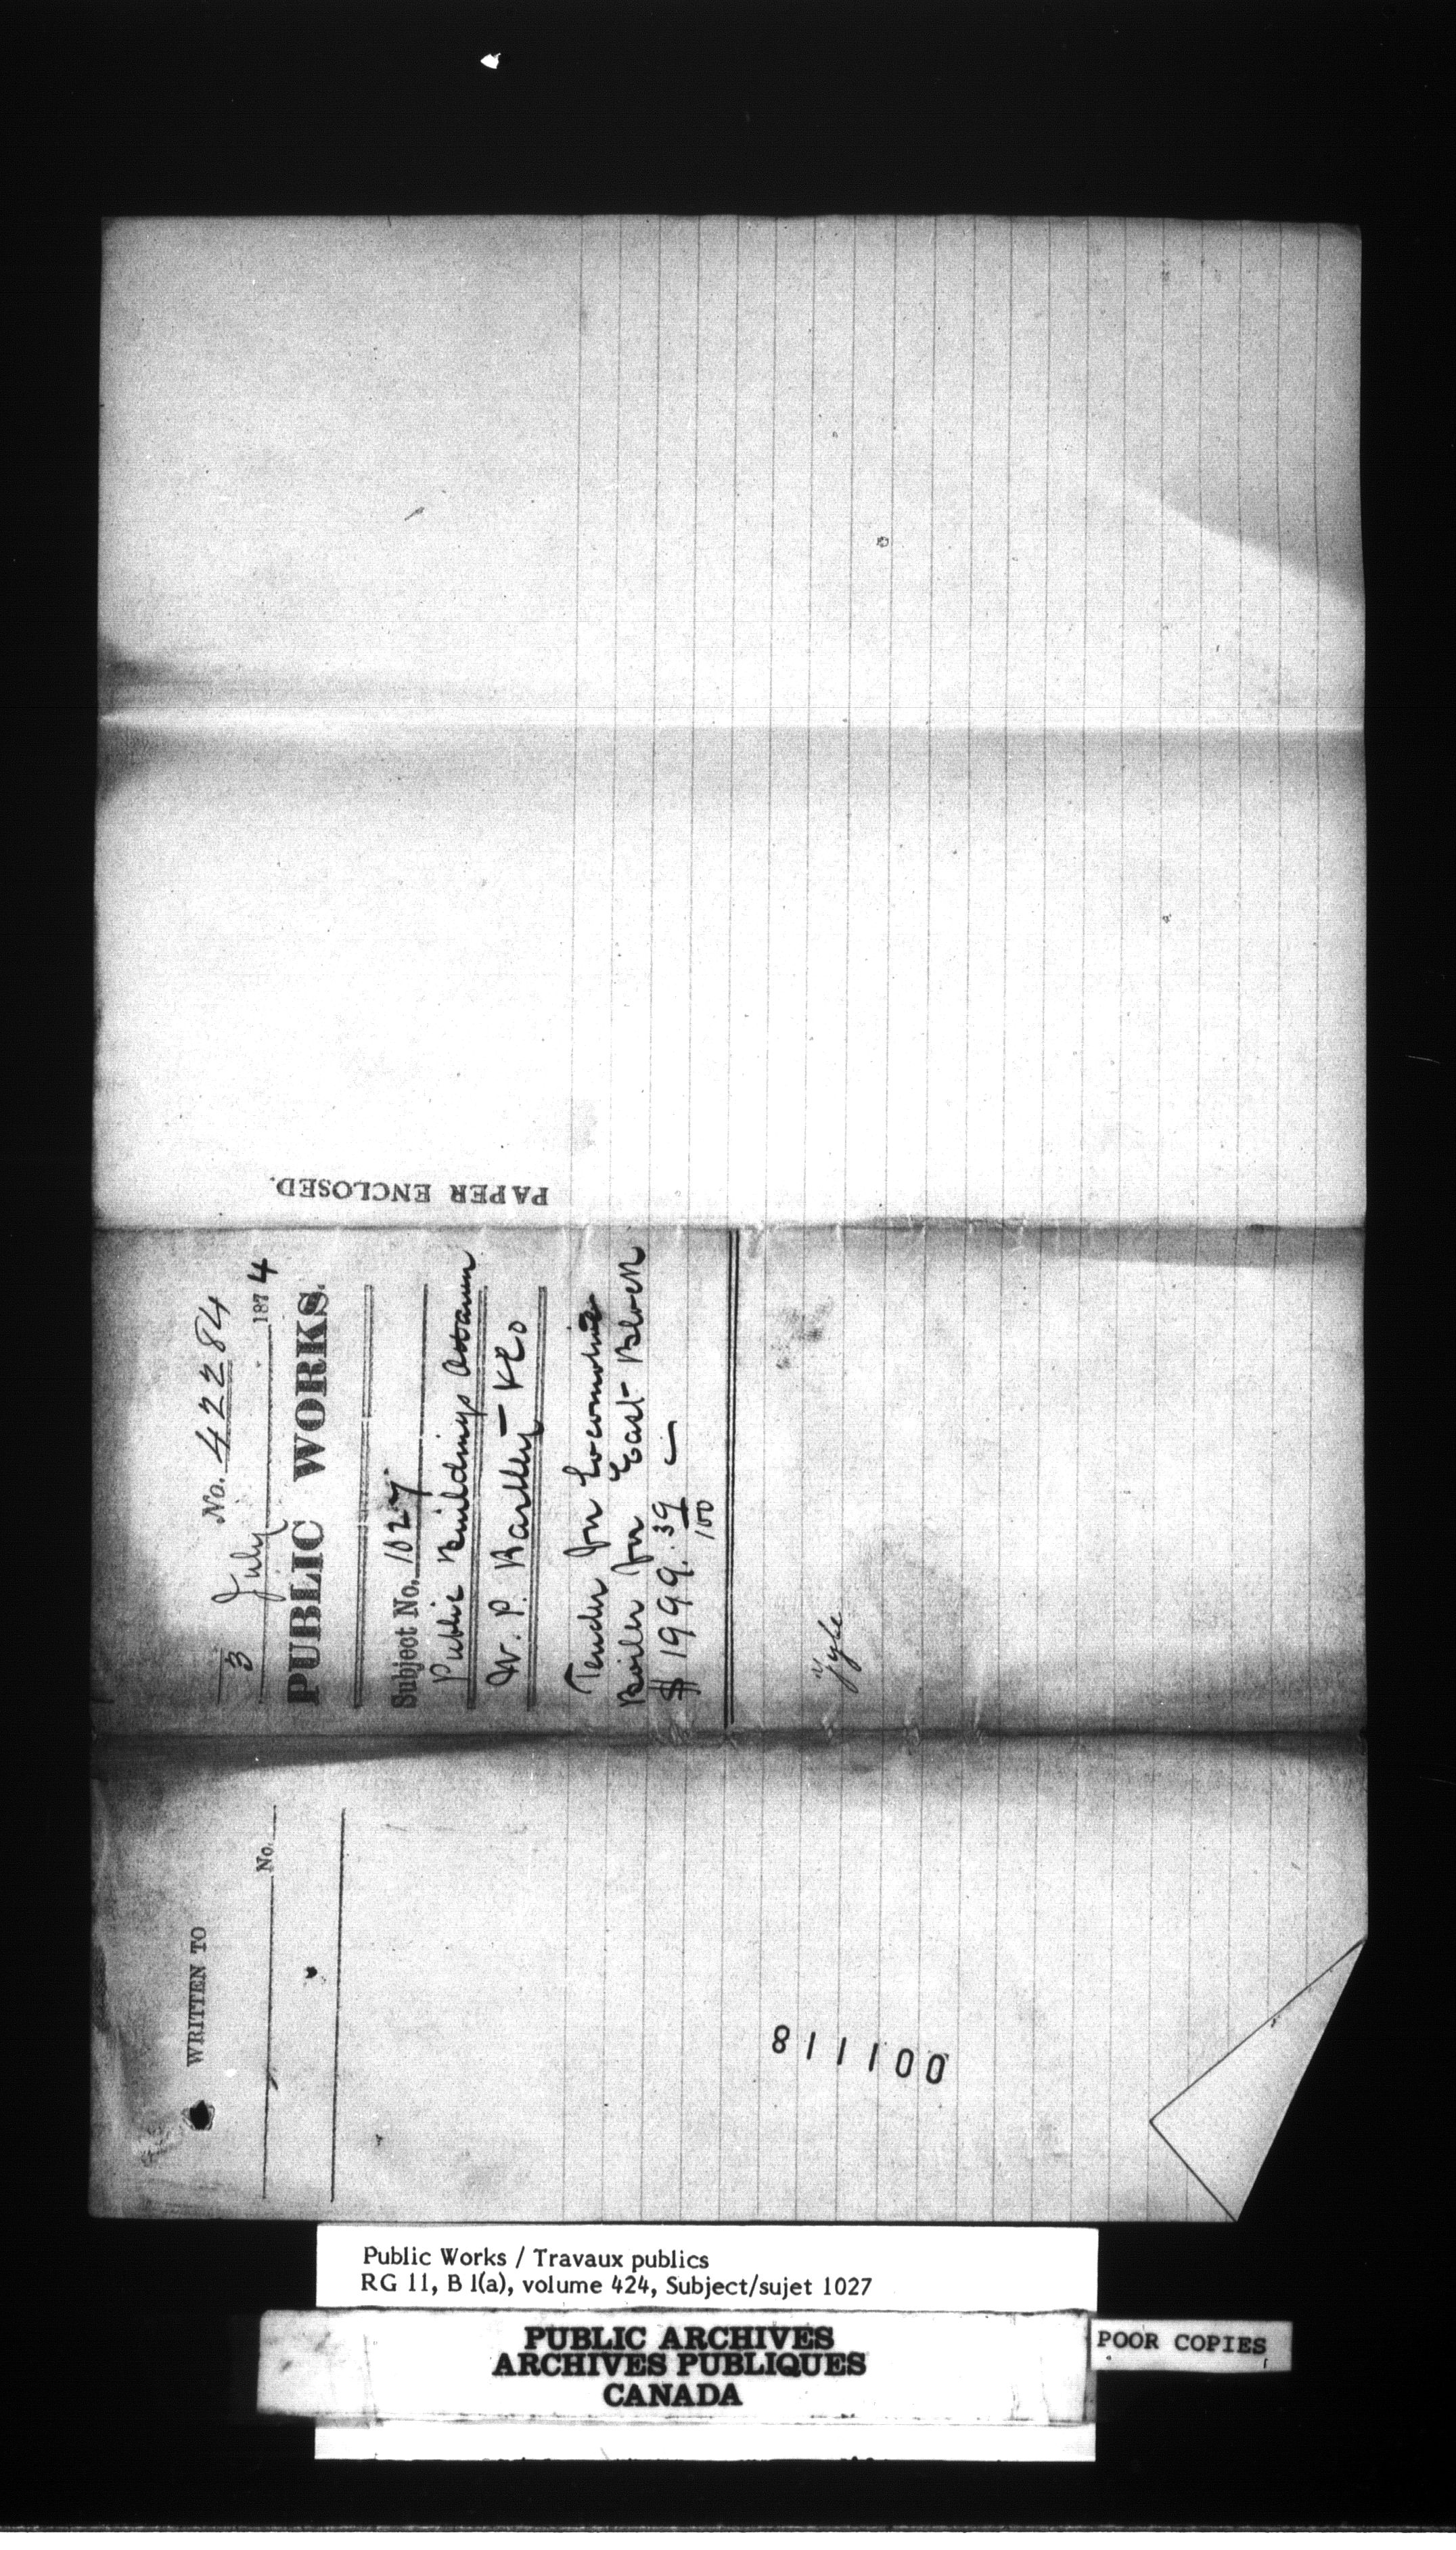 PAPER ENCLOSED.
No. 42284
3 July 1874
PUBLIC WORKS.
Subject No. 1027
Public Buildings Ottawa
W. P. Bartley & Co
Tender for Locomotive
Boiler for East Block
$1999.39/100 —
WRITTEN TO
No.
811100
Public Works / Travaux publics
RG 11, B 1(a), volume 424, Subject/sujet 1027
PUBLIC ARCHIVES
ARCHIVES PUBLIQUES
CANADA
POOR COPIES